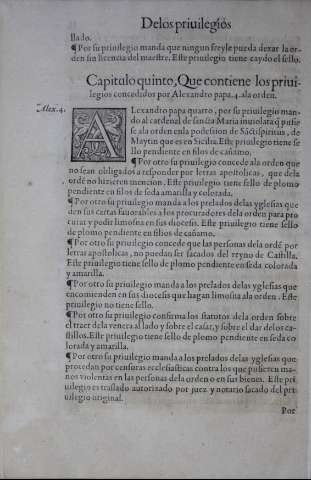 De los priuilegios
llado.
¶Por su priuilegio manda que ningun freyle pueda dexar la or-
den sin licencia del maestre. Este priuilegio tiene caydo el sello.
Capitulo quinto, Que contiene los priui-
legios concedidos por Alexandro papa .4. ala orden.
Alex. 4.
ALexandro papa quarto, por su priuilegio man-
do al cardenal de sancta Maria inuiolata q̃ pusie
se ala orden enla possession de Sãctispiritus, de
Maytin que es en Sicilia. Este priuilegio tiene se
llo pendiente en filos de cañamo.
¶Por otro su priuilegio concede ala orden que
no sean obligados a responder por letras apostolicas, que dela
ordẽ no hizieren mencion. Este priuilegio tiene sello de plomo
pendiente en filos de seda amarilla y colorada.
¶Por otro su priuilegio manda a los prelados delas yglesias que
den sus cartas fauorables a los procuradores dela orden para pro
curar y pedir limosna en sus diocesis. Este priuilegio tiene sello
de plomo pendiente en filos de cañamo.
¶Por otro su priuilegio concede que las personas dela ordẽ por
letras apostolicas, no puedan ser sacados del reyno de Castilla.
Este priuilegio tiene sello de plomo pendiente en seda colorada
y amarilla.
¶Por otro su priuilegio manda a los prelados delas yglesias que
encomienden en sus diocesis que hagan limosna ala orden. Este
priuilegio no tiene sello.
¶Por otro su priuilegio confirma los statutos dela orden sobre
el traer dela venera al lado y sobre el casar, y sobre el dar delos ca-
stillos. Este priuilegio tiene sello de plomo pendiente en seda co
lorada y amarilla.
¶Por otro su priuilegio manda a los prelados delas yglesias que
procedan por censuras ecclesiasticas contra los que pusieren ma-
nos violentas en las personas dela orden o en sus bienes. Este pri
uilegio es traslado autorizado por juez y notario sacado del pri
uilegio original.
Por